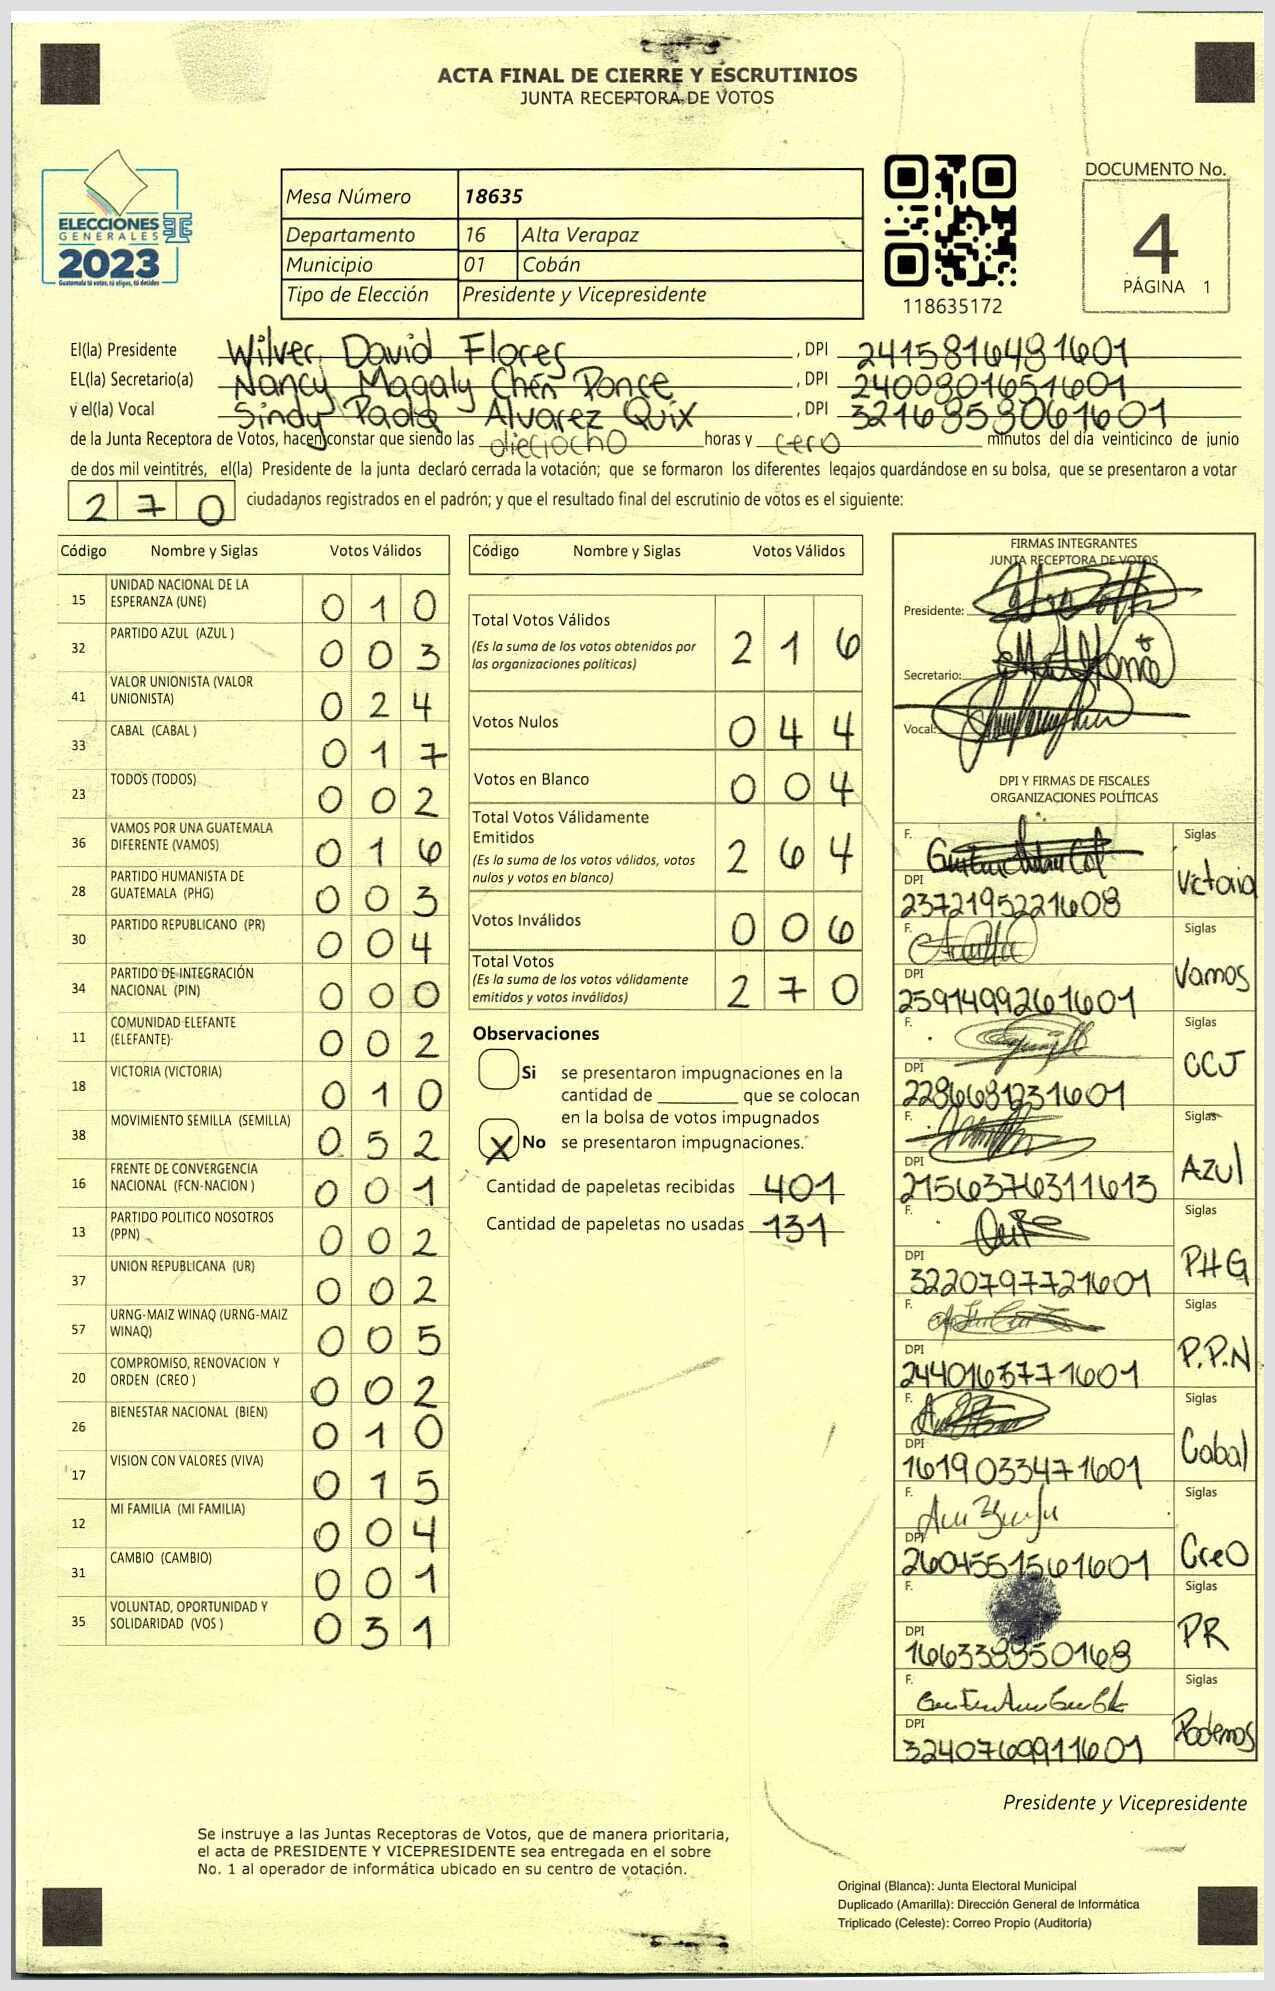 ACTA FINAL DE CIERRE Y ESCRUTINIOS
JUNTA RECEPTORA DE VOTOS
ELECCIONES
GENERALES
2023
Guatemala tú votas, tú eliges, tú decides
Mesa Número 18635
Departamento 16 Alta Verapaz
Municipio 01 Cobán
Tipo de Elección Presidente y Vicepresidente
118635172
DOCUMENTO No.
4
PÁGINA 1
El(la) Presidente Wilver David Flores, DPI 2415816481601
EL(la) Secretario(a) Nancy Magaly Chén Ponce, DPI 2400801651601
y el(la) Vocal Sindy Paola Alvarez Quix, DPI 3216858061601
de la Junta Receptora de Votos, hacen constar que siendo las dieciocho horas y cero minutos del día veinticinco de junio
de dos mil veintitrés, el(la) Presidente de la junta declaró cerrada la votación; que se formaron los diferentes legajos guardándose en su bolsa, que se presentaron a votar
270 ciudadanos registrados en el padrón; y que el resultado final del escrutinio de votos es el siguiente:
Código Nombre y Siglas Votos Válidos
15 UNIDAD NACIONAL DE LA ESPERANZA (UNE) 010
32 PARTIDO AZUL (AZUL ) 003
41 VALOR UNIONISTA (VALOR UNIONISTA) 024
33 CABAL (CABAL ) 017
23 TODOS (TODOS) 002
36 VAMOS POR UNA GUATEMALA DIFERENTE (VAMOS) 016
28 PARTIDO HUMANISTA DE GUATEMALA (PHG) 003
30 PARTIDO REPUBLICANO (PR) 004
34 PARTIDO DE INTEGRACIÓN NACIONAL (PIN) 000
11 COMUNIDAD ELEFANTE (ELEFANTE) 002
18 VICTORIA (VICTORIA) 010
38 MOVIMIENTO SEMILLA (SEMILLA) 052
16 FRENTE DE CONVERGENCIA NACIONAL (FCN-NACION ) 001
13 PARTIDO POLITICO NOSOTROS (PPN) 002
37 UNION REPUBLICANA (UR) 002
57 URNG-MAIZ WINAQ (URNG-MAIZ WINAQ) 005
20 COMPROMISO, RENOVACION Y ORDEN (CREO ) 002
26 BIENESTAR NACIONAL (BIEN) 010
17 VISION CON VALORES (VIVA) 015
12 MI FAMILIA (MI FAMILIA) 004
31 CAMBIO (CAMBIO) 001
35 VOLUNTAD, OPORTUNIDAD Y SOLIDARIDAD (VOS ) 031
Código Nombre y Siglas Votos Válidos
Total Votos Válidos 216
(Es la suma de los votos obtenidos por
las organizaciones políticas)
Votos Nulos 044
Votos en Blanco 004
Total Votos Válidamente
Emitidos 264
(Es la suma de los votos válidos, votos
nulos y votos en blanco)
Votos Inválidos 006
Total Votos 270
(Es la suma de los votos válidamente
emitidos y votos inválidos)
Observaciones
Si se presentaron impugnaciones en la
cantidad de ________ que se colocan
en la bolsa de votos impugnados
X No se presentaron impugnaciones.
Cantidad de papeletas recibidas 401
Cantidad de papeletas no usadas 131
FIRMAS INTEGRANTES
JUNTA RECEPTORA DE VOTOS
Presidente:
Secretario:
Vocal:
DPI Y FIRMAS DE FISCALES
ORGANIZACIONES POLÍTICAS
F. Siglas Victoria
DPI 2372195221608
F. Siglas Vamos
DPI 2591499261601
F. Siglas CCJ
DPI 2286681231601
F. Siglas Azul
DPI 2156376311613
F. Siglas PHG
DPI 3220797721601
F. Siglas P.P.N
DPI 2440163771601
F. Siglas Cabal
DPI 1619033471601
F. Siglas Creo
DPI 2604551561601
F. Siglas PR
DPI 1663383350168
F. Siglas Podemos
DPI 3240769911601
Presidente y Vicepresidente
Se instruye a las Juntas Receptoras de Votos, que de manera prioritaria,
el acta de PRESIDENTE Y VICEPRESIDENTE sea entregada en el sobre
No. 1 al operador de informática ubicado en su centro de votación.
Original (Blanca): Junta Electoral Municipal
Duplicado (Amarilla): Dirección General de Informática
Triplicado (Celeste): Correo Propio (Auditoría)